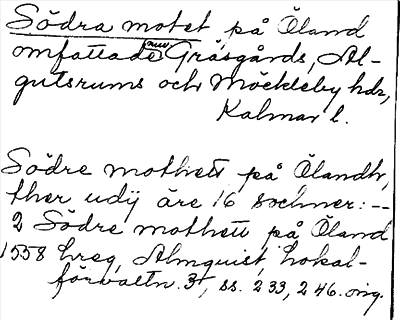 Södra motet, på Öland
omfattade nuv Gräsgårds, Al-
gutsrums och Möckleby hdr,
Kalmar l.
Södre mothett på Ölandh,
ther udÿ äre 16 sochner: --
2 Södre mothett på Öland
1558 hreg, Almquist, Lokal-
förvaltn. 3, ss. 233, 246. orig.